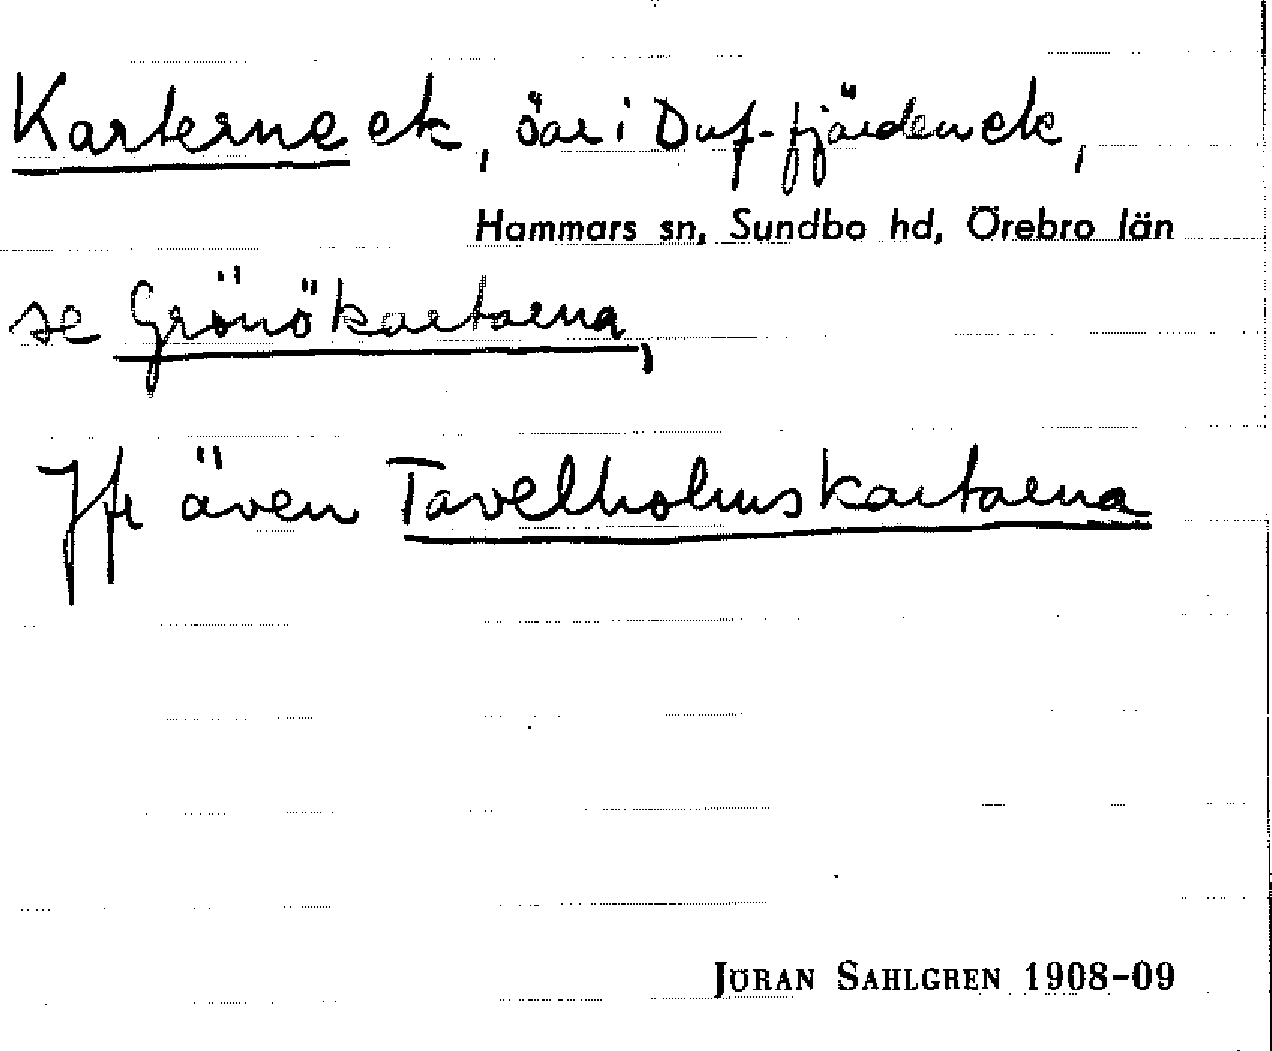 Karterne ek, öar i Duf-fjärden ek,
Hammars sn, Sundbo hd, Örebro län
se Grönökartarna,
Jfr även Tavelholmskartarna
JÖRAN SAHLGREN 1908-09